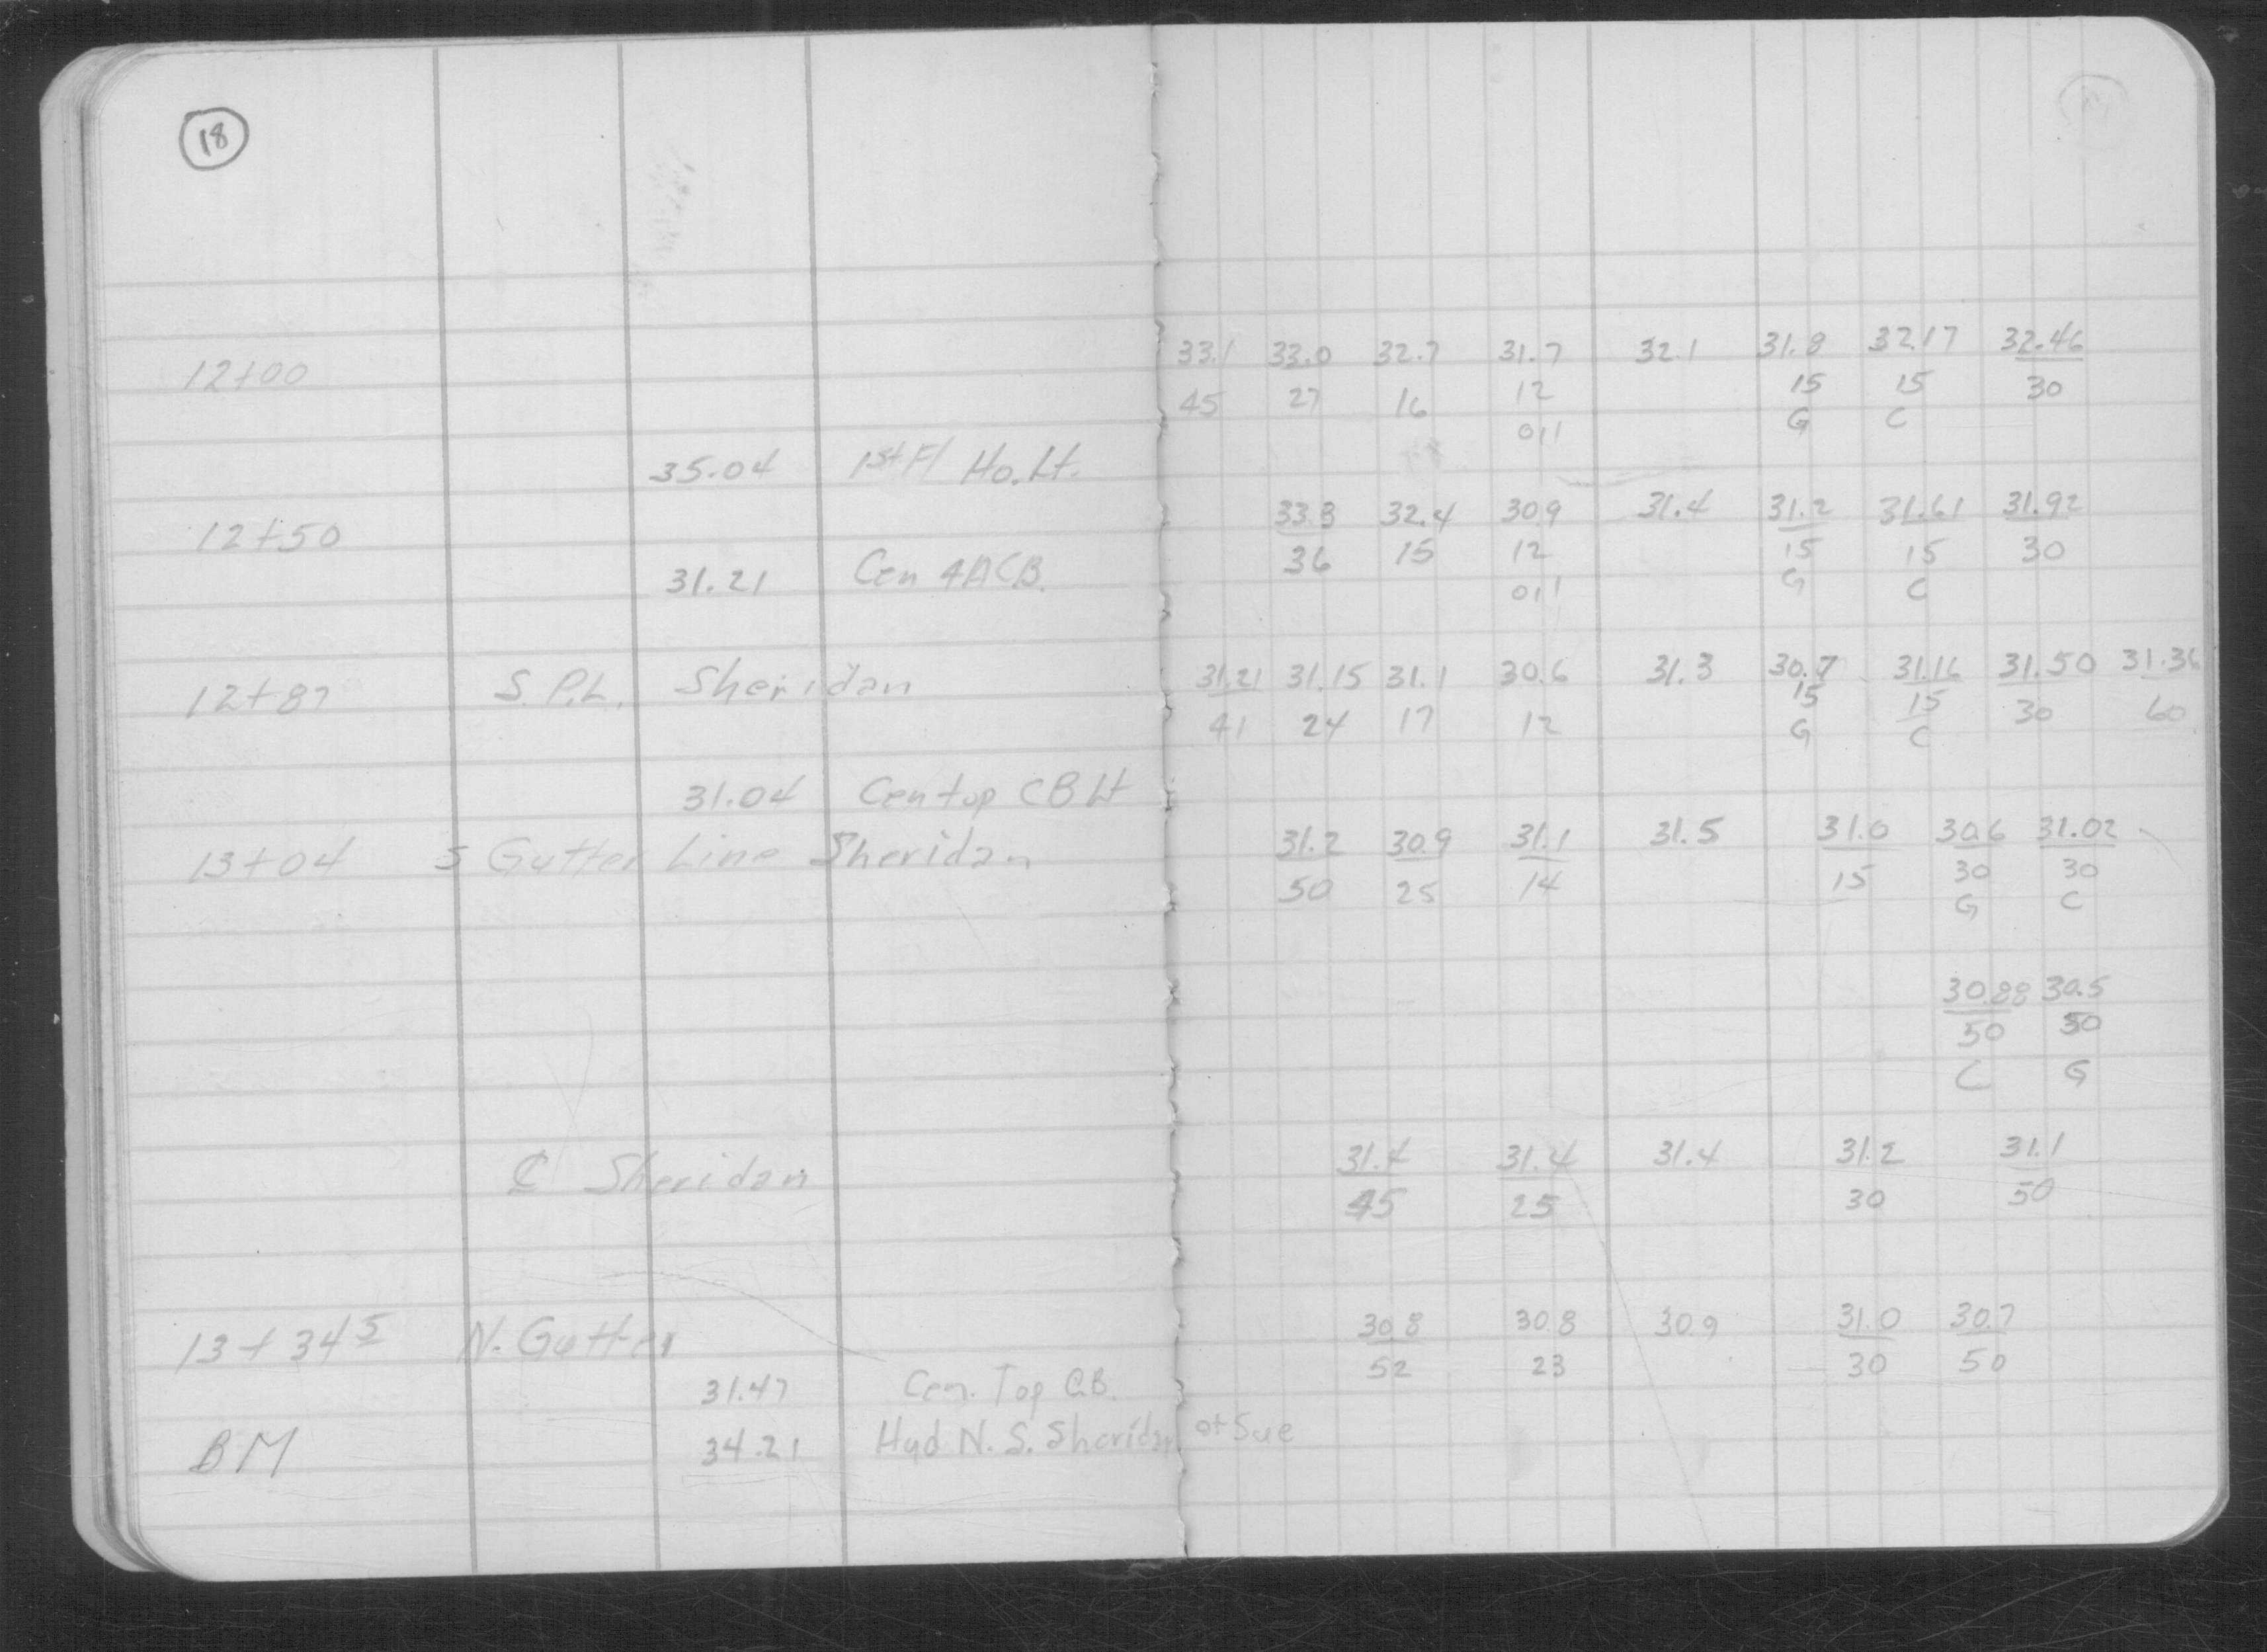 18
12+00
33.1 33.0 32.7 31.7 32.1 31.8 32.17 32.46
45 27 16 12 15 15 30
oil G C
35.04 1st Fl Ho. Lt.
12+50
33.3 32.4 30.9 31.4 31.2 31.61 31.92
36 15 12 15 15 30
oil G C
31.21 Cen 4A CB.
12+87 S. P.L. Sheridan
31.21 31.15 31.1 30.6 31.3 30.7 31.16 31.50 31.36
41 24 17 12 15 15 30 60
G C
31.04 Cen top CB Lt
13+04 S Gutter Line Sheridan
31.2 30.9 31.1 31.5 31.0 30.6 31.02
50 25 14 15 30 30
G C
30.88 30.5
50 50
C G
℄ Sheridan
31.4 31.4 31.4 31.2 31.1
45 25 30 50
13+34 5 N. Gutter
30.8 30.8 30.9 31.0 30.7
52 23 30 50
31.47 Cen. Top C.B.
BM 34.21 Hyd N. S. Sheridan at Sue